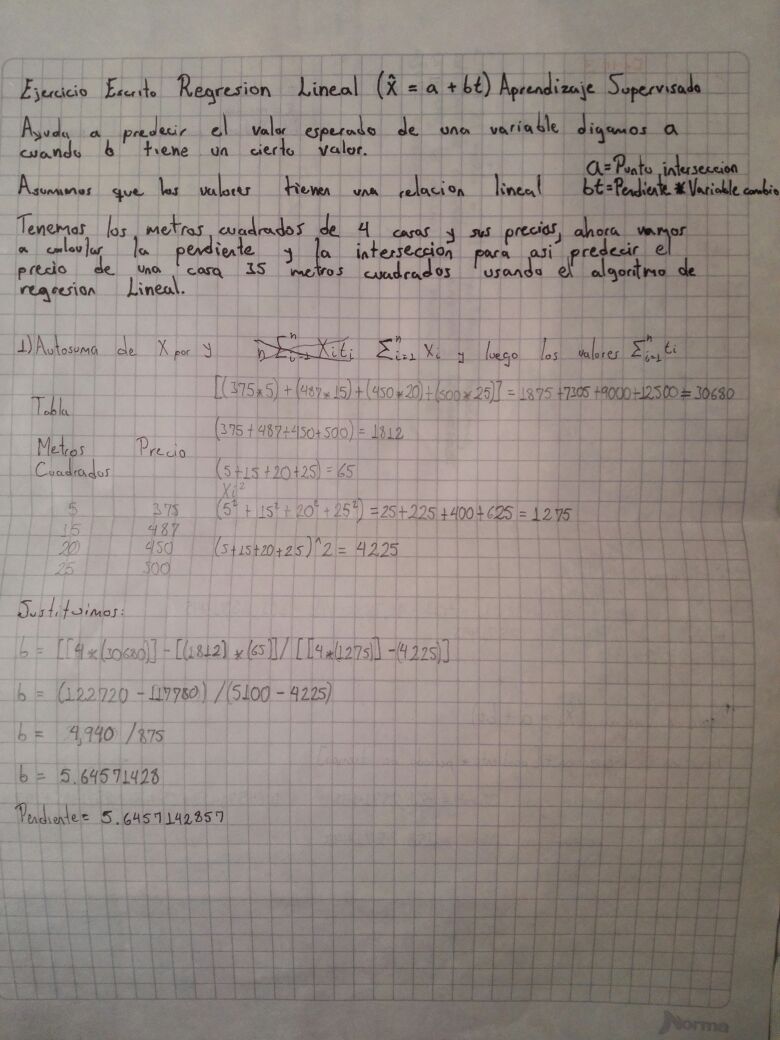 Ejercicio Escrito Regresion Lineal (x̂ = a + bt) Aprendizaje Supervisado
Ayuda a predecir el valor esperado de una variable digamos a
cuando b tiene un cierto valor.
a = Punto interseccion
Asumimos que los valores tienen una relacion lineal
bt = Pendiente * Variable cambio
Tenemos los metros cuadrados de 4 casas y sus precios, ahora vamos
a calcular la pendiente y la interseccion para asi predecir el
precio de una casa 35 metros cuadrados usando el algoritmo de
regresion Lineal.
1) Autosuma de X por y n Σⁿᵢ₌₁ Xiti Σⁿᵢ₌₁ Xi y luego los valores Σⁿᵢ₌₁ ti
[(375*5) + (487*15) + (450*20) + (500*25)] = 1875 + 7305 + 9000 + 12500 = 30680
Tabla
(375 + 487 + 450 + 500) = 1812
Metros Precio
Cuadrados
(5 + 15 + 20 + 25) = 65
Xi²
5 375 (5² + 15² + 20² + 25²) = 25 + 225 + 400 + 625 = 1275
15 487
20 450 (5 + 15 + 20 + 25)^2 = 4225
25 500
Sustituimos:
b = [[4*(30680)] - [(1812) * (65)] / [[4*(1275)] - (4225)]
b = (122720 - 117780) / (5100 - 4225)
b = 4,940 / 875
b = 5.64571428
Pendiente = 5.6457142857
Norma